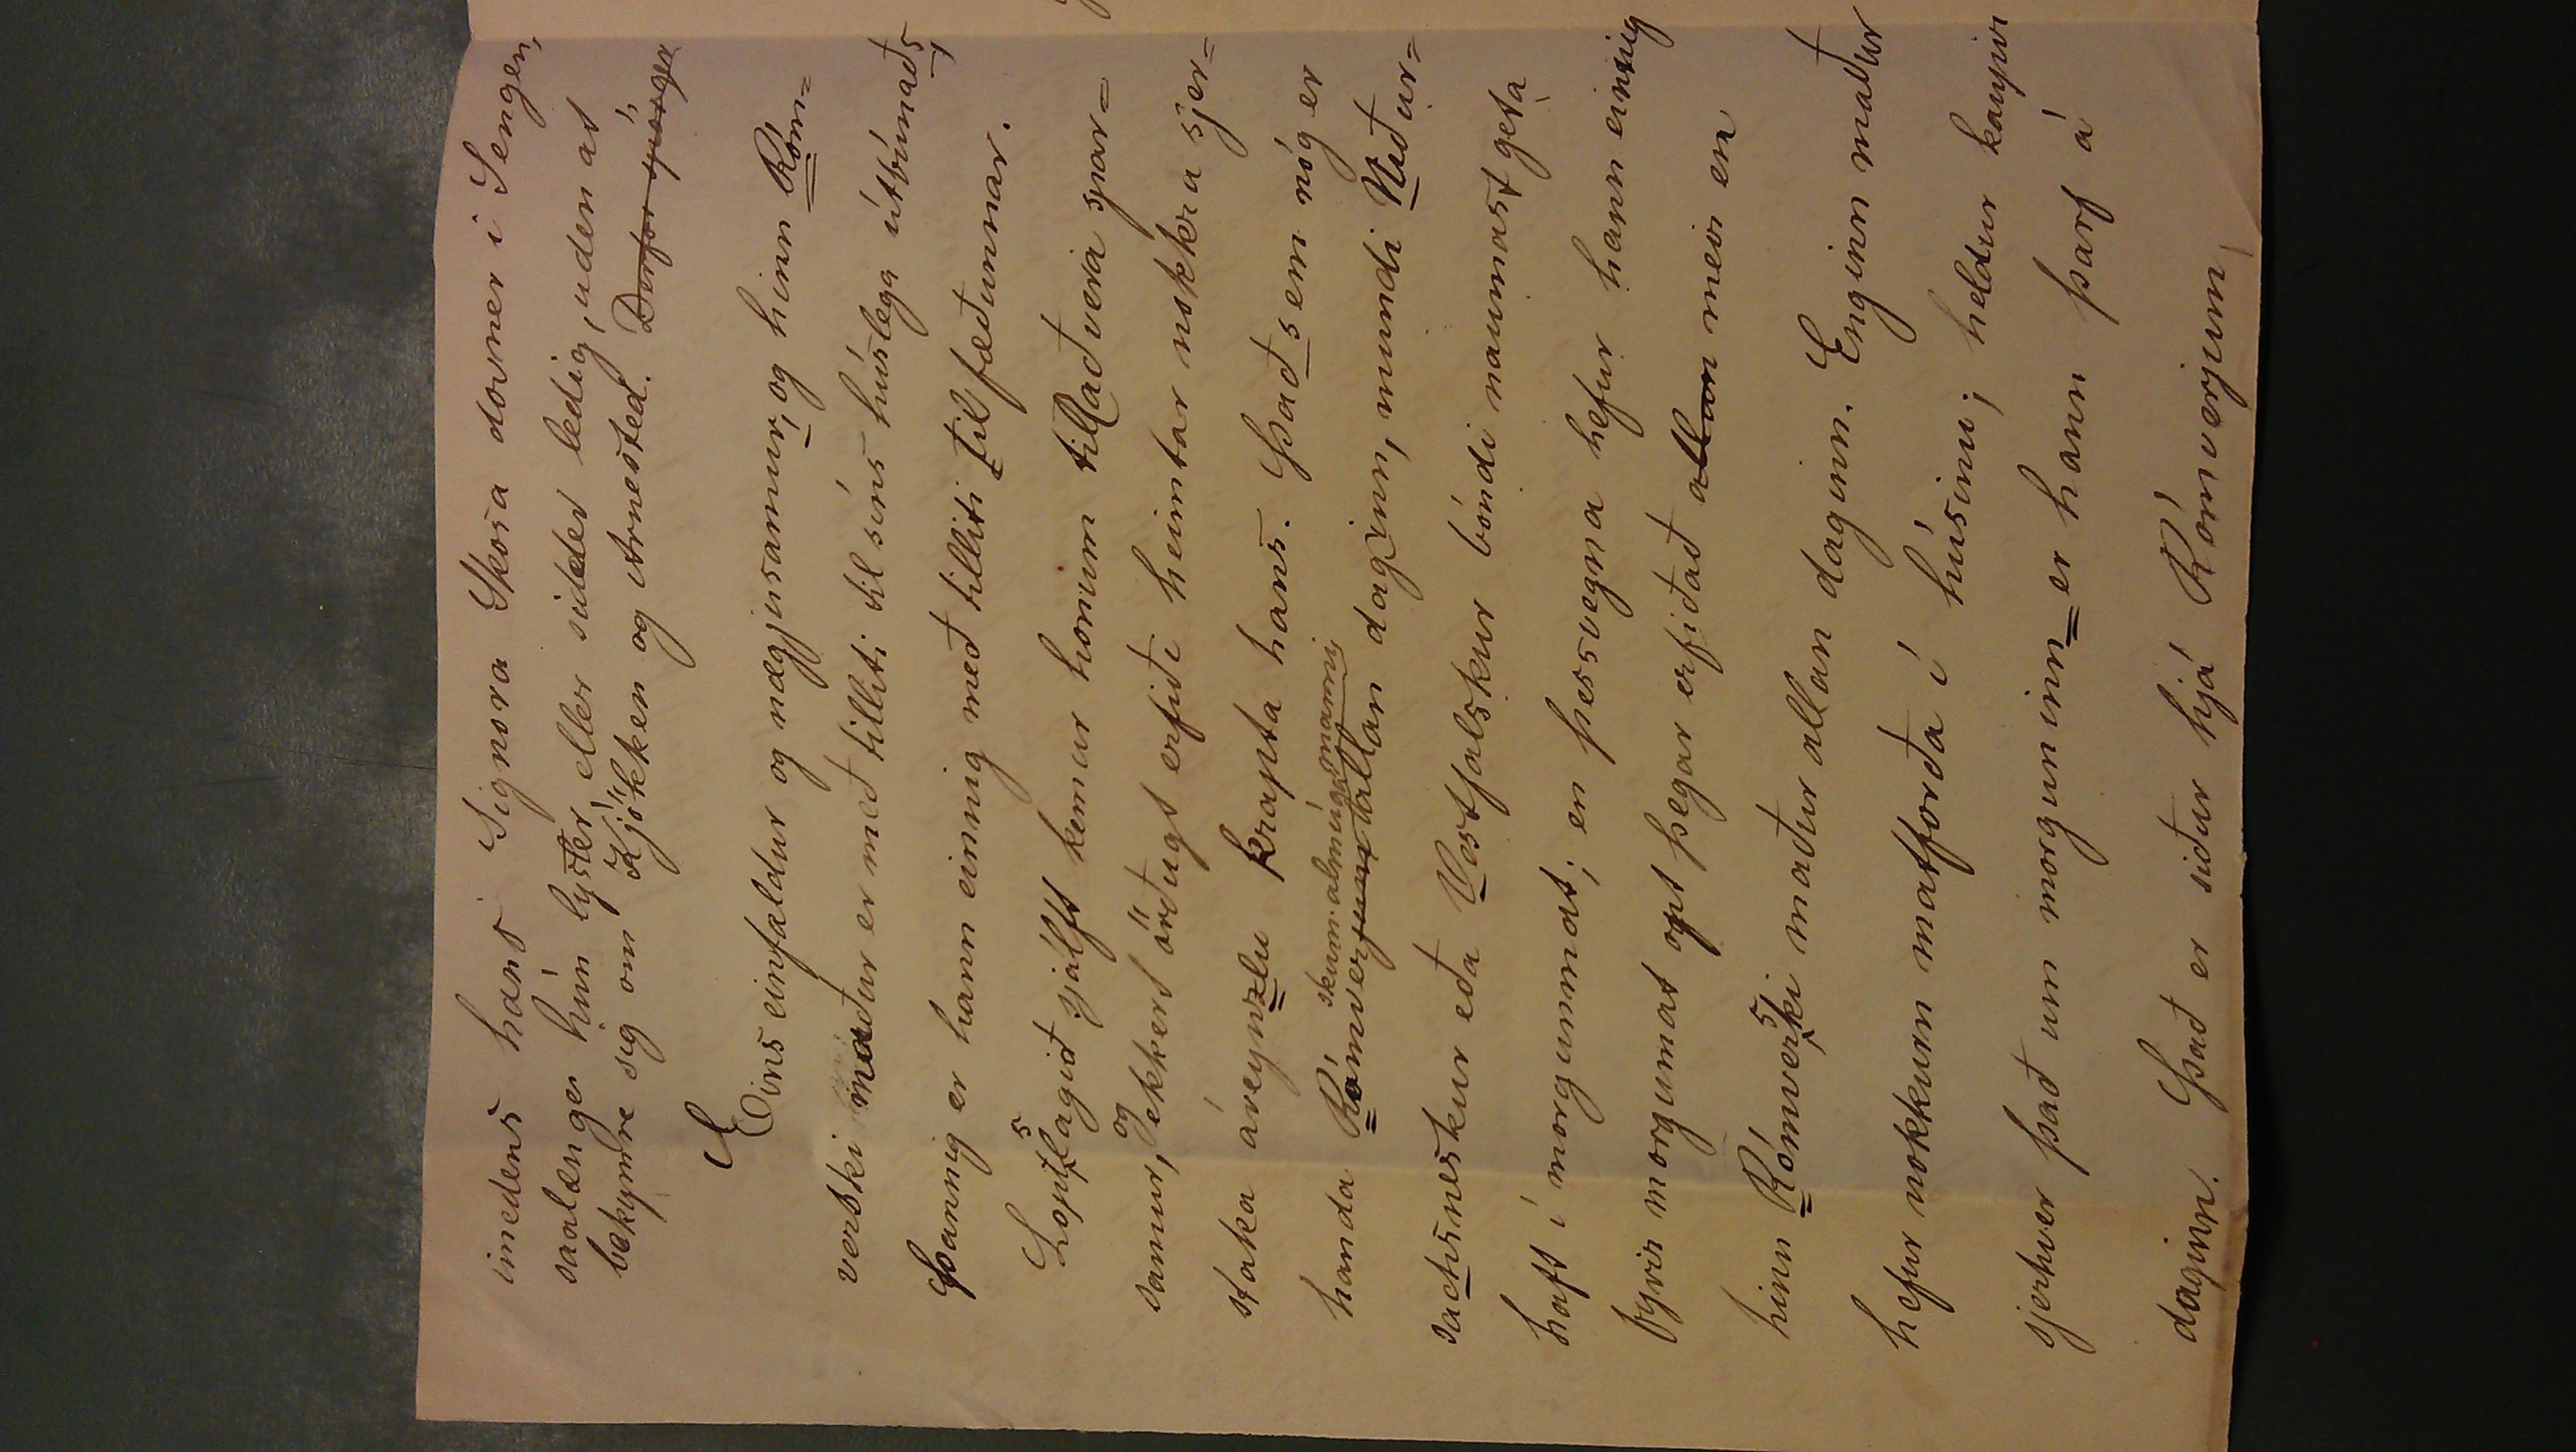 imedens hans Signora Skosa dovner i Sengen,
saalænge hún lyster, eller sidder ledig, uden at
bekymre sig om Kjökken og Arnested. Derfor spörger
Eins einfaldur og nægjusamur, og hinn Róm=
verski maður er með tilliti til síns húslega útbúnaðs,
Þannig er hann einnig með tilliti til fæðunnar.
Loptslagið sjálft kemur honum til að vera spar=
samur, og ekkert örðugt erfiði heimtar nokkra sjer=
staka áreynzlu krapta hans. Það sem nóg er
handa Rómverskum almúgamanni allan daginn, mundi Niður=
sachsneskur eða Vestfalskur bóndi naumast geta
haft í morgunmat; en þessvegna hefur hann einnig
fyrir morgunmat opt þegar erfiðað allan meir en
hinn Rómverski maður allan daginn. Enginn maður
hefur nokkurn matforða í húsinu; heldur kaupir
sjerhver það um morguninn= er hann þarf á
daginn. Það er siður hjá Rómverjum,